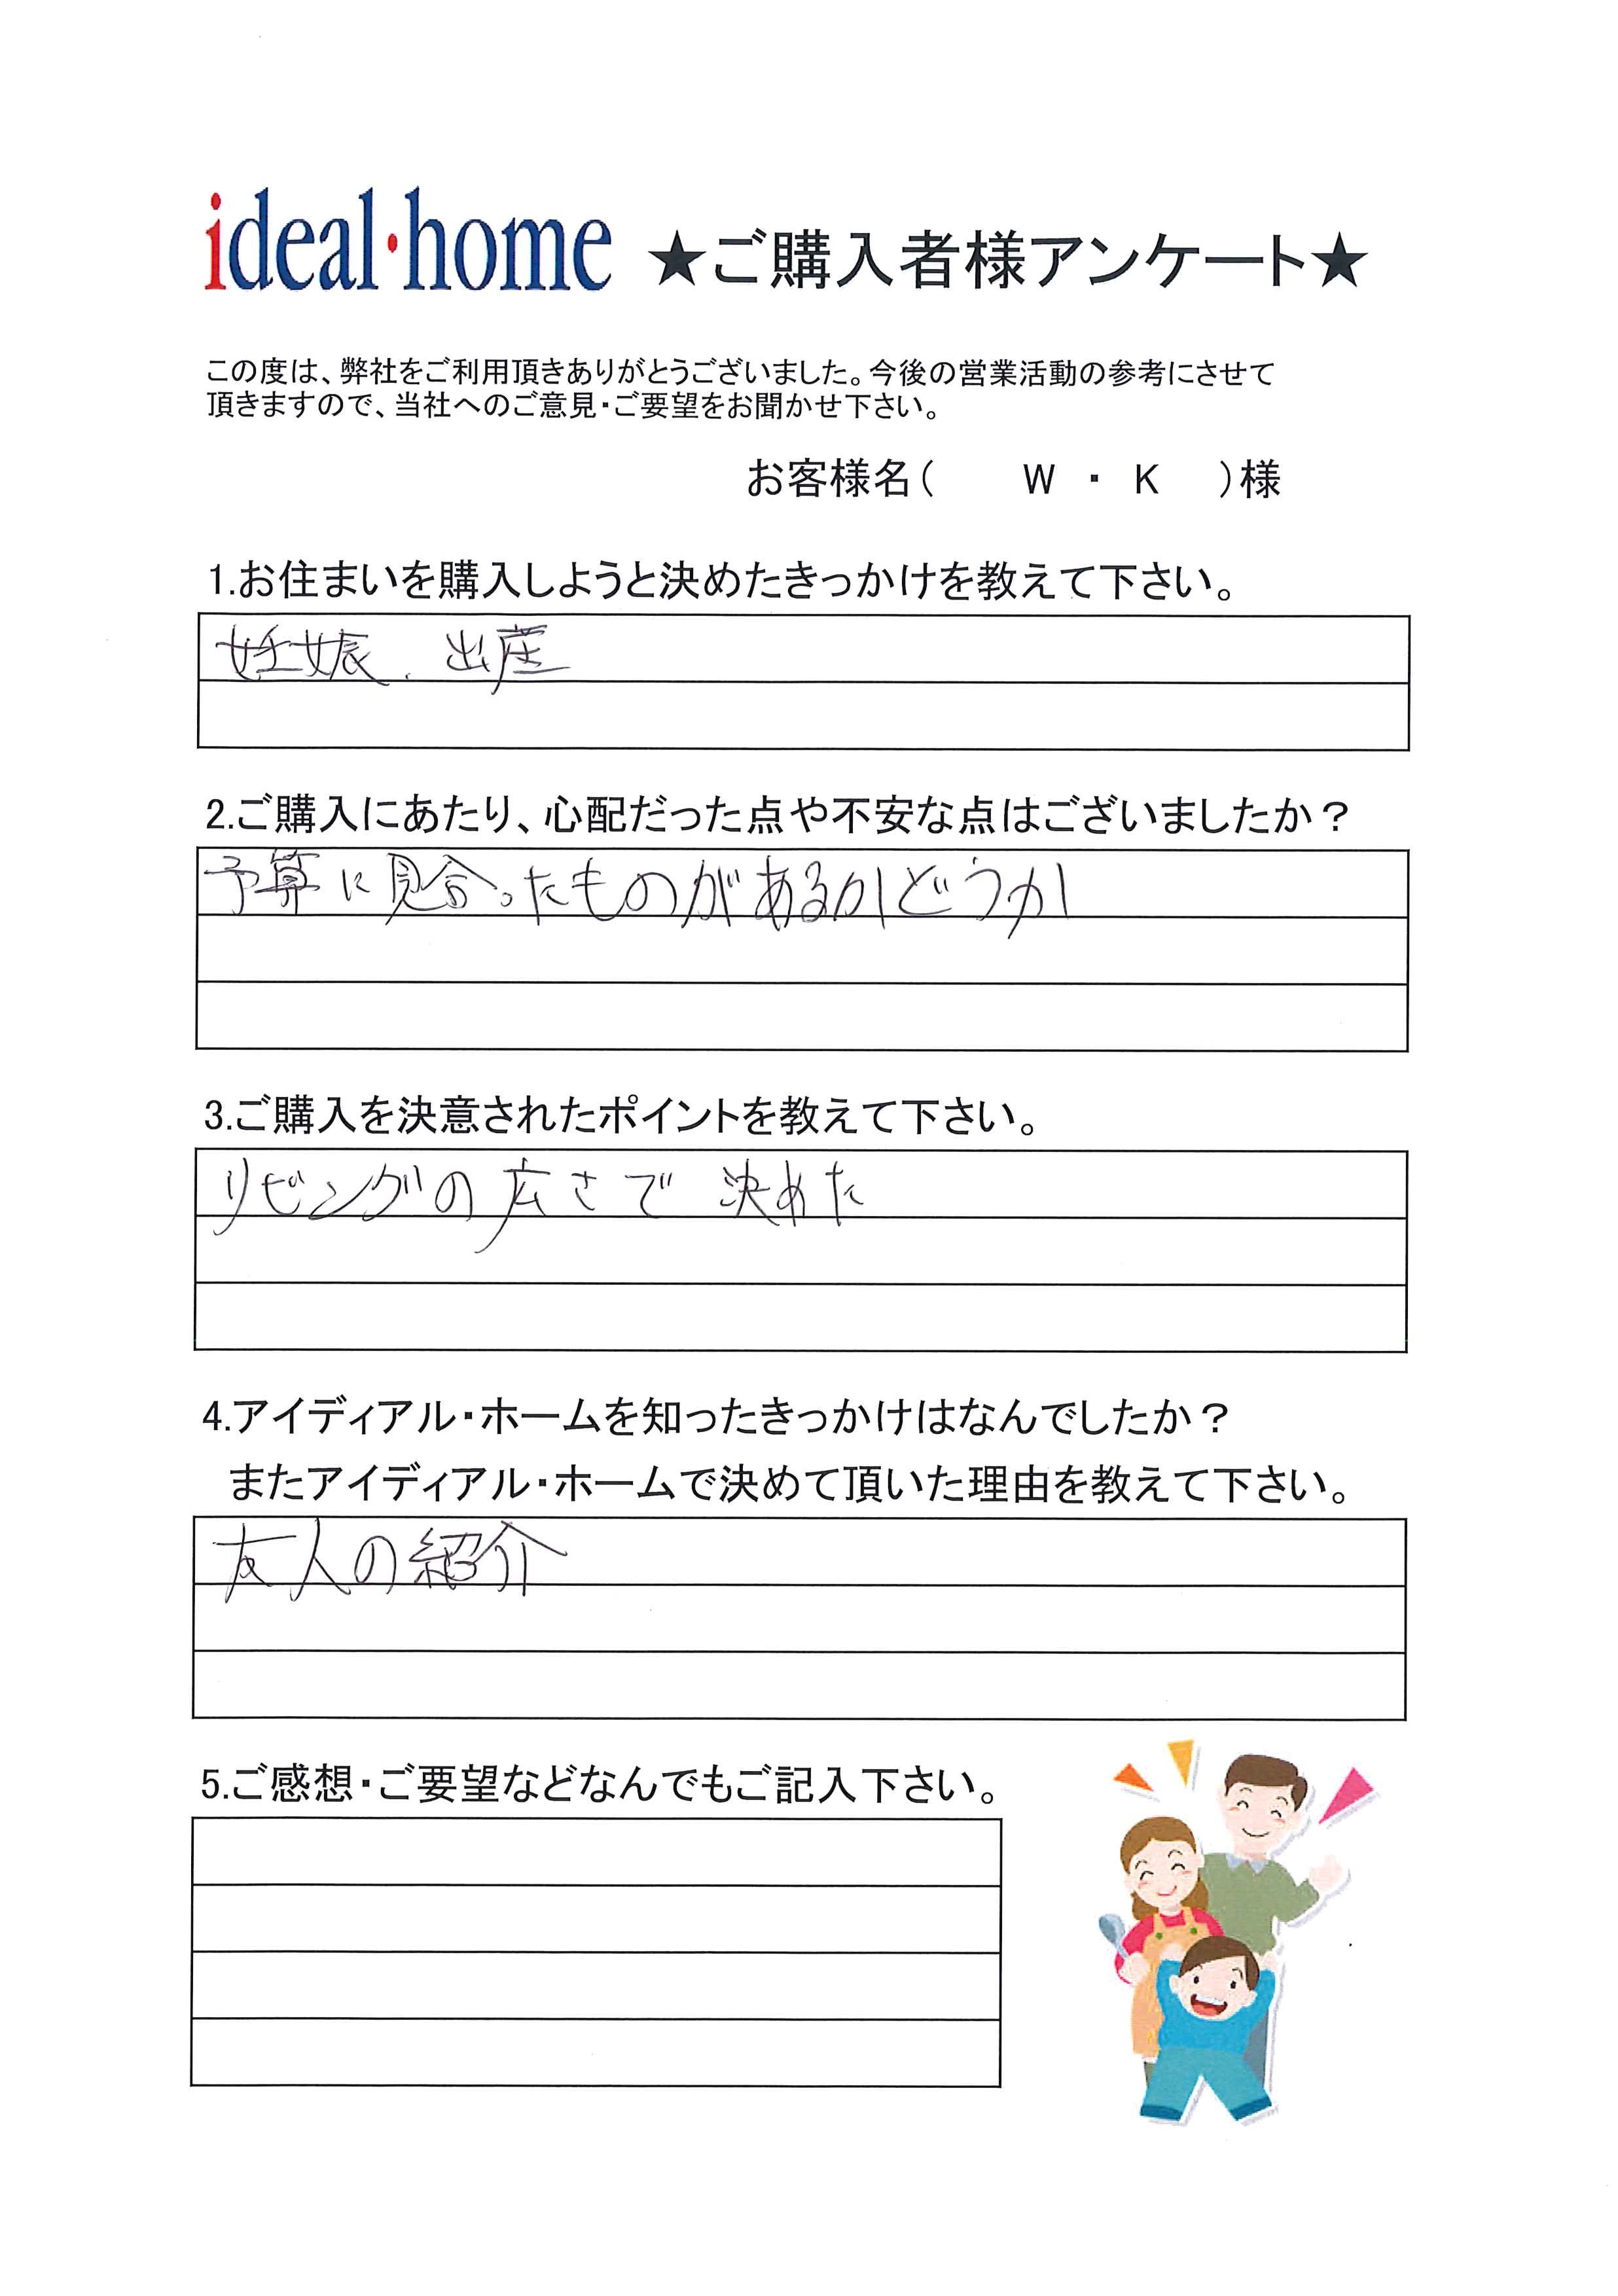 ideal・home ★ご購入者様アンケート★
この度は、弊社をご利用頂きありがとうございました。今後の営業活動の参考にさせて
頂きますので、当社へのご意見・ご要望をお聞かせ下さい。
お客様名( W ・ K )様
1.お住まいを購入しようと決めたきっかけを教えて下さい。
妊娠、出産
2.ご購入にあたり、心配だった点や不安な点はございましたか？
予算に見合ったものがあるかどうか
3.ご購入を決意されたポイントを教えて下さい。
リビングの広さで 決めた
4.アイディアル・ホームを知ったきっかけはなんでしたか？
またアイディアル・ホームで決めて頂いた理由を教えて下さい。
友人の紹介
5.ご感想・ご要望などなんでもご記入下さい。